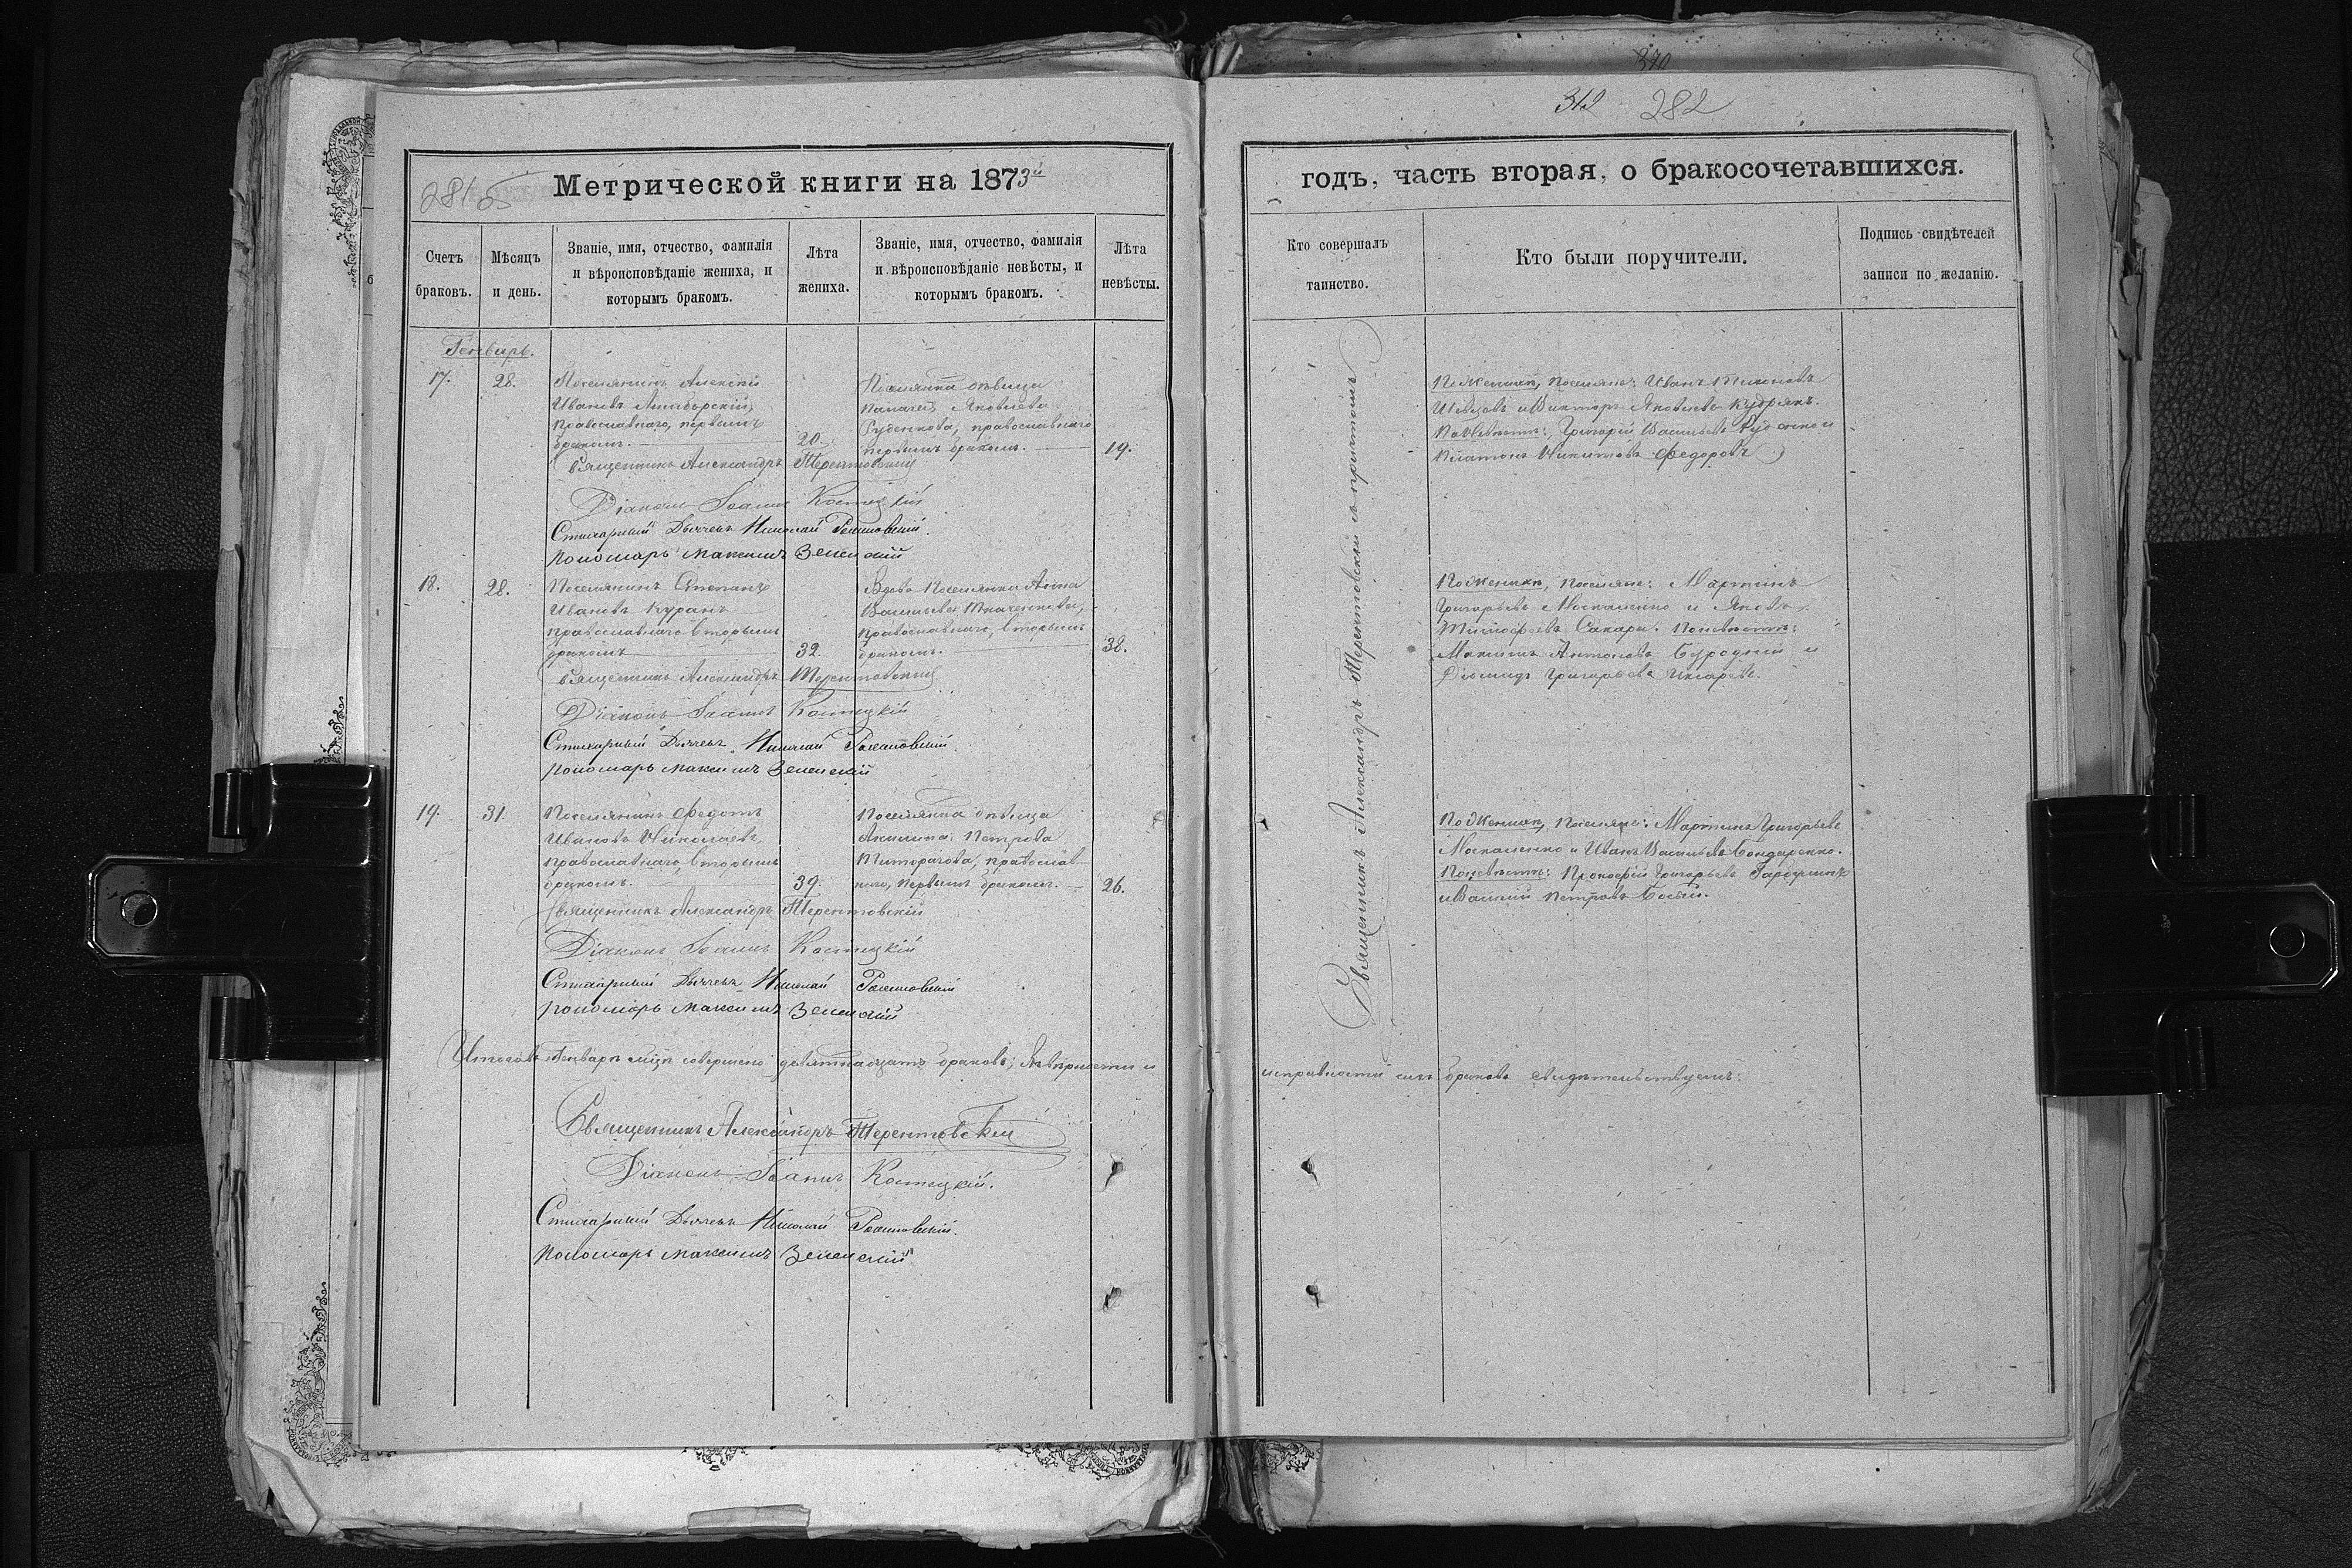 370
312 282
281 об
Метрической книги на 1873й
годъ, часть вторая, о бракосочетавшихся.
Счетъ браковъ.
Мѣсяцъ и день.
Званіе, имя, отчество, фамилія
и вѣроисповѣданіе жениха, и
которымъ бракомъ.
Лѣта
жениха.
Званіе, имя, отчество, фамилія
и вѣроисповѣданіе невѣсты, и
которымъ бракомъ.
Лѣта
невѣсты.
Кто совершалъ
таинство.
Кто были поручители.
Подпись свидѣтелей
записи по желанію.
Генварь.
17.
28.
Поселянинъ Алексій
Ивановъ
православнаго, первымъ
бракомъ.
20.
Поселянка дѣвица
Яковлева
Руденкова, православнаго
первымъ бракомъ.
19.
Священникъ Александръ Терентовскій
Діаконъ Іоаннъ Костецкій
Стихарный Дьячекъ Николай
Пономарь Максимъ Зеленскій
18.
28.
Поселянинъ Степанъ
Ивановъ Куранъ
православнаго вторымъ
бракомъ
32.
Вдова Поселянка Анна
Васильева Ткаченкова,
православнаго, вторымъ
бракомъ.
38.
Священникъ Александръ Терентовскій
Діаконъ Іоаннъ Костецкій
Стихарный Дьячекъ Николай
Пономарь Максимъ Зеленскій
19.
31.
Поселянинъ Федотъ
Ивановъ Николаевъ,
православнаго вторымъ
бракомъ.
39.
Поселянка дѣвица
Акилина Петрова
православ-
наго, первымъ бракомъ.
26.
Священникъ Александръ Терентовскій
Діаконъ Іоаннъ Костецкій
Стихарный Дьячекъ Николай
Пономарь Максимъ Зеленскій
Священникъ Александръ Терентовскій съ причтомъ
По Женихѣ, поселяне: Иванъ
и Викторъ Яковлевъ Кудрякъ.
По Невѣстѣ: Григорій Васильевъ Руденко и
Платонъ Никитовъ Федоровъ
По Женихѣ, поселяне: Мартинъ
Григорьевъ Москаленко и Яковъ
Тимофеевъ. По невѣстѣ:
Максимъ Антоновъ и
Діомидъ Григорьевъ
По Женихѣ, Поселяне: Мартинъ Григорьевъ
Москаленко и Иванъ Васильевъ Бондаренко.
По невѣстѣ: Прокофій Григорьевъ
и Василій Петровъ
Итого въ Генварѣ мѣсцѣ совершено девятнадцать браковъ; въ вѣрности и
исправности сихъ браковъ свидѣтельствуемъ:
Священникъ Александръ Терентовскій
Діаконъ Іоаннъ Костецкій.
Стихарный Дьячекъ Николай
Пономарь Максимъ Зеленскій